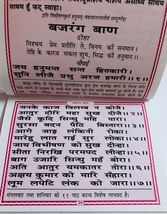 बजरंग बाण
दोहा
निश्चय प्रेम प्रतीति ते, विनय करैं सनमान।
तेहि के कारज सकल शुभ, सिद्ध करैं हनुमान॥
जय हनुमन्त सन्त हितकारी।
सुनि लीजै प्रभु अरज हमारी॥१॥
जनके काज विलम्ब न कीजै।
आतुर दौरि महा सुख दीजै॥२॥
जैसे कूदि सिन्धु महि पारा।
सुरसा बदन पैठि बिस्तारा॥३॥
आगे जाइ लंकिनी रोका।
मारेहु लात गई सुर लोका॥४॥
जाय विभीषण को सुख दीन्हा।
सीता निरखि परमपद लीन्हा॥५॥
बाग उजारि सिन्धु महं बोरा।
अति आतुर यमकातर तोरा॥६॥
अक्षय कुमार को मारि संहारा।
लूम लपेटि लंक को जारा॥७॥